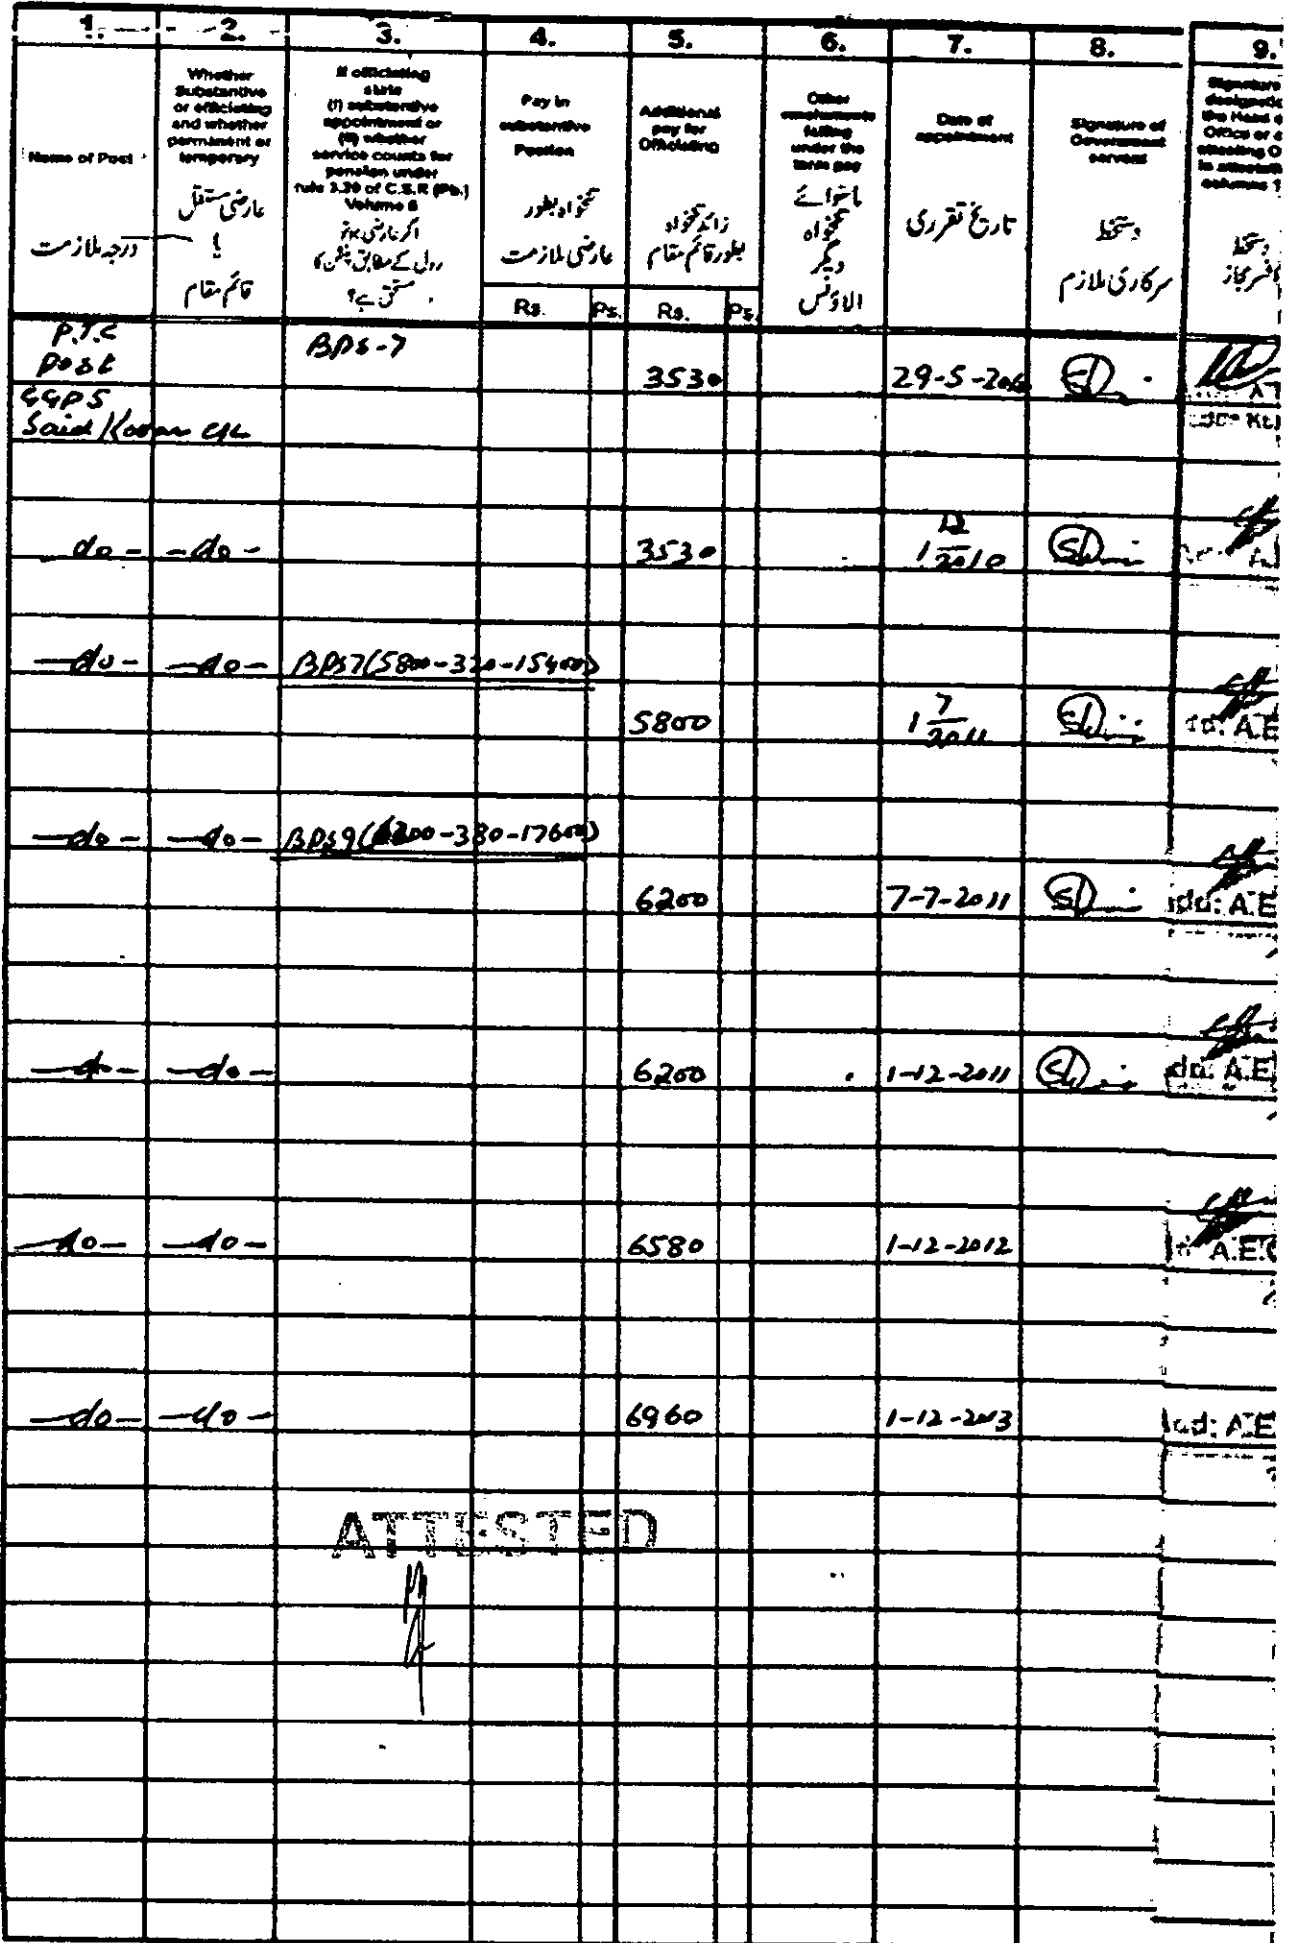 1. 2. 3. 4. 5. 6. 7. 8. 9.
Name of Post
درجہ ملازمت
Whether
Substantive
or officiating
and whether
permanent or
temporary
عارضی مستقل
یا
قائم مقام
If officiating
state
(i) substantive
appointment or
(ii) whether
service counts for
pension under
rule 3.20 of C.S.R (Pb.)
Volume
اگر عارضی ہو تو
رول کے مطابق پنشن کا
مستحق ہے؟
Pay in
substantive
Position
تنخواہ بطور
عارضی ملازمت
Rs. Ps.
Additional
pay for
Officiating
زائد تنخواہ
بطور قائم مقام
Rs. Ps.
Other
emoluments
falling
under the
term pay
ماسوائے
تنخواہ
دیگر
الاؤنس
Date of
appointment
تاریخ تقرری
Signature of
Government
servant
دستخط
سرکاری ملازم
Signature
designatio
the Head o
Office or o
attesting O
in attestati
columns 1
دستخط
افسر مجاز
P.T.C BPS-7
Post 3530 29-5-
GGPS
Said
do - - do - 3530 1 12/2010
- do - - do - BPS7(5800-320-15400)
5800 1 7/2011 A.E
- do - - do - BPS9(6200-380-17600)
6200 7-7-2011 dd: A.E
- do - - do - 6200 1-12-2011 dd: A.E
- do - - do - 6580 1-12-2012 A.E.
- do - - do - 6960 1-12-2013 dd: A.E
ATTESTED